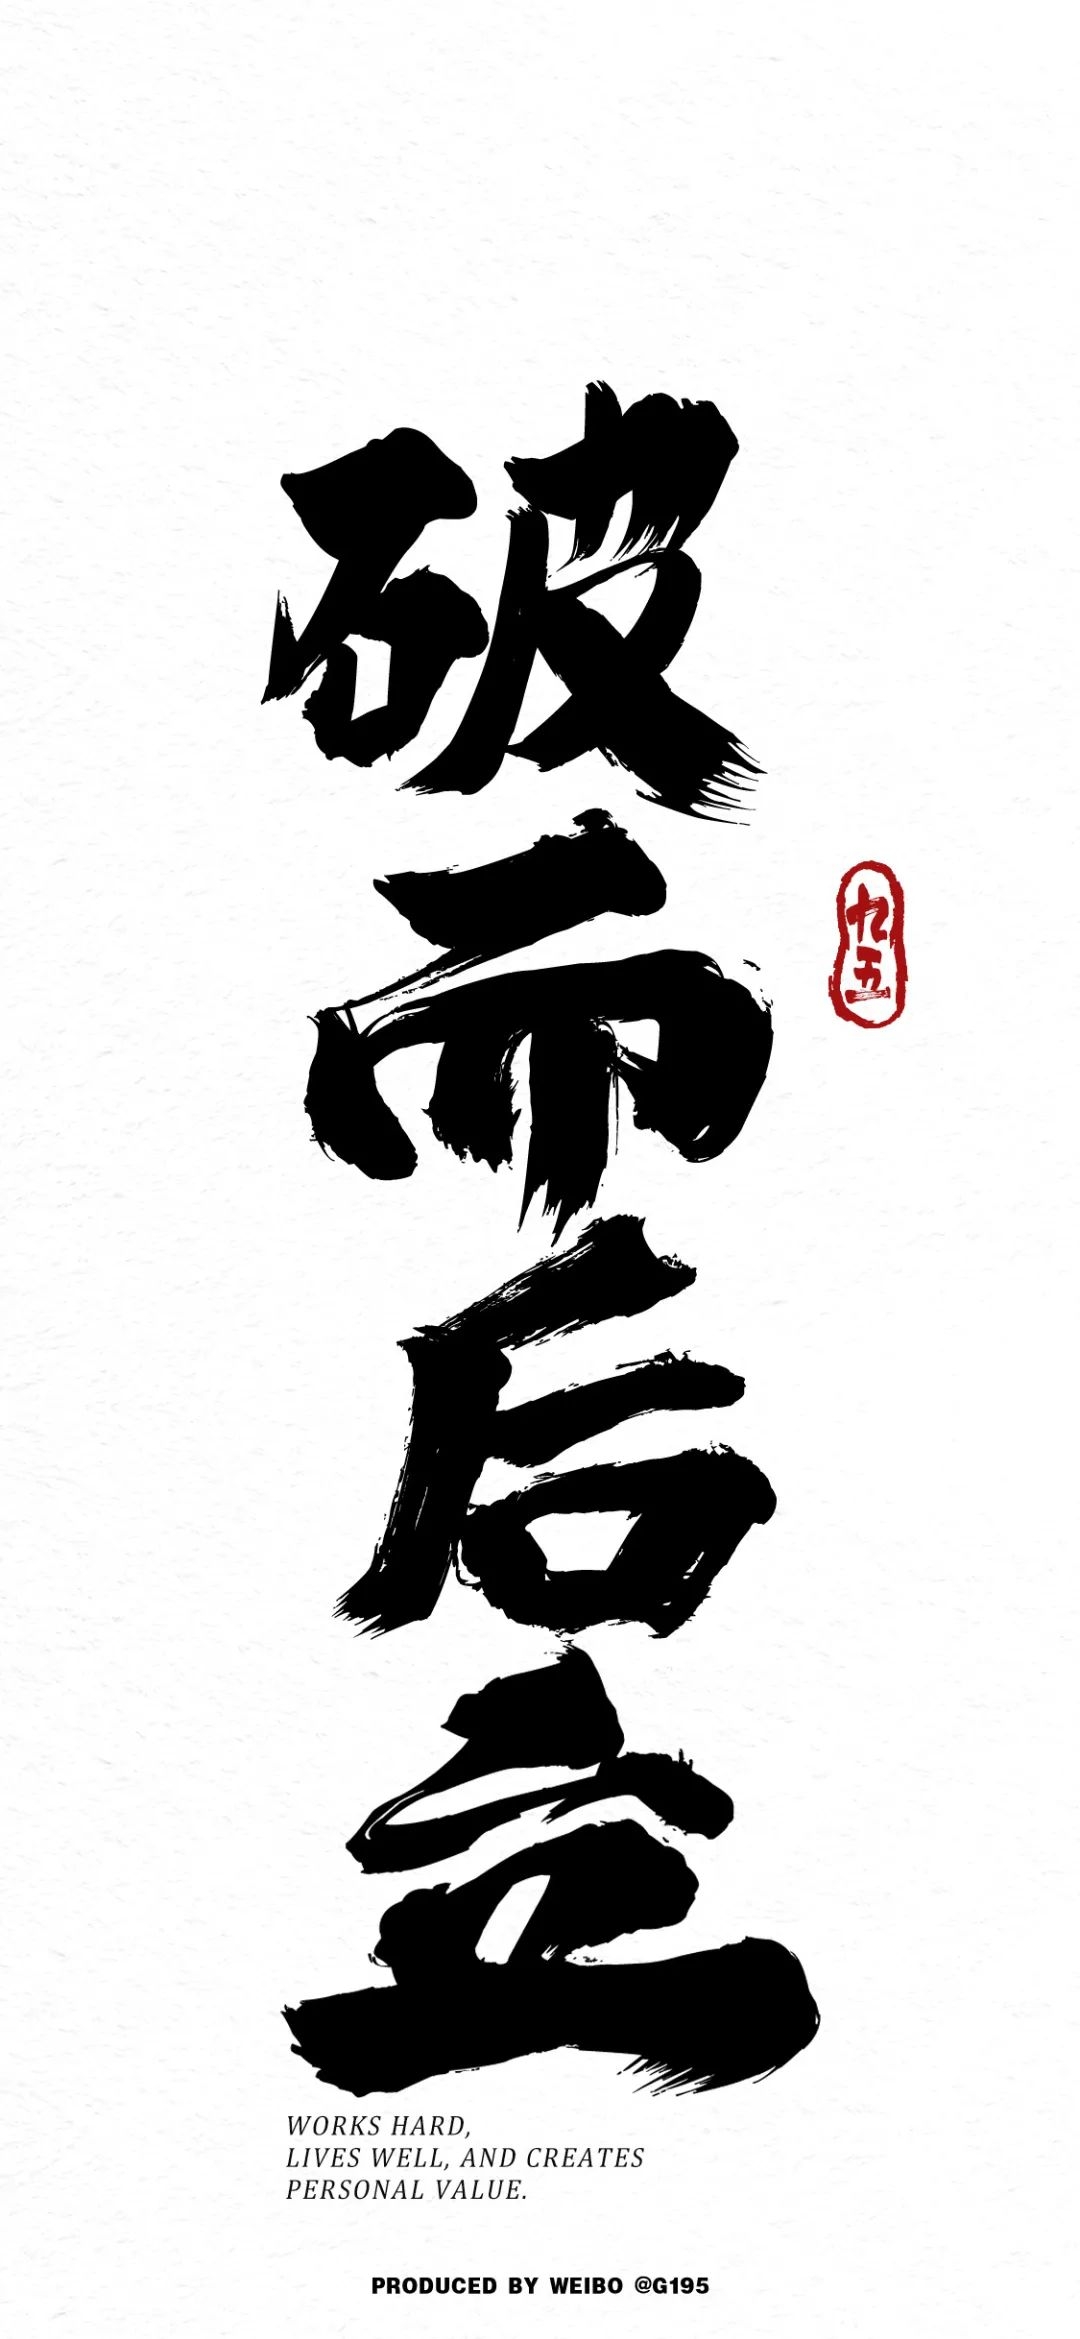 破而后立
九五
WORKS HARD,
LIVES WELL, AND CREATES
PERSONAL VALUE.
PRODUCED BY WEIBO @G195